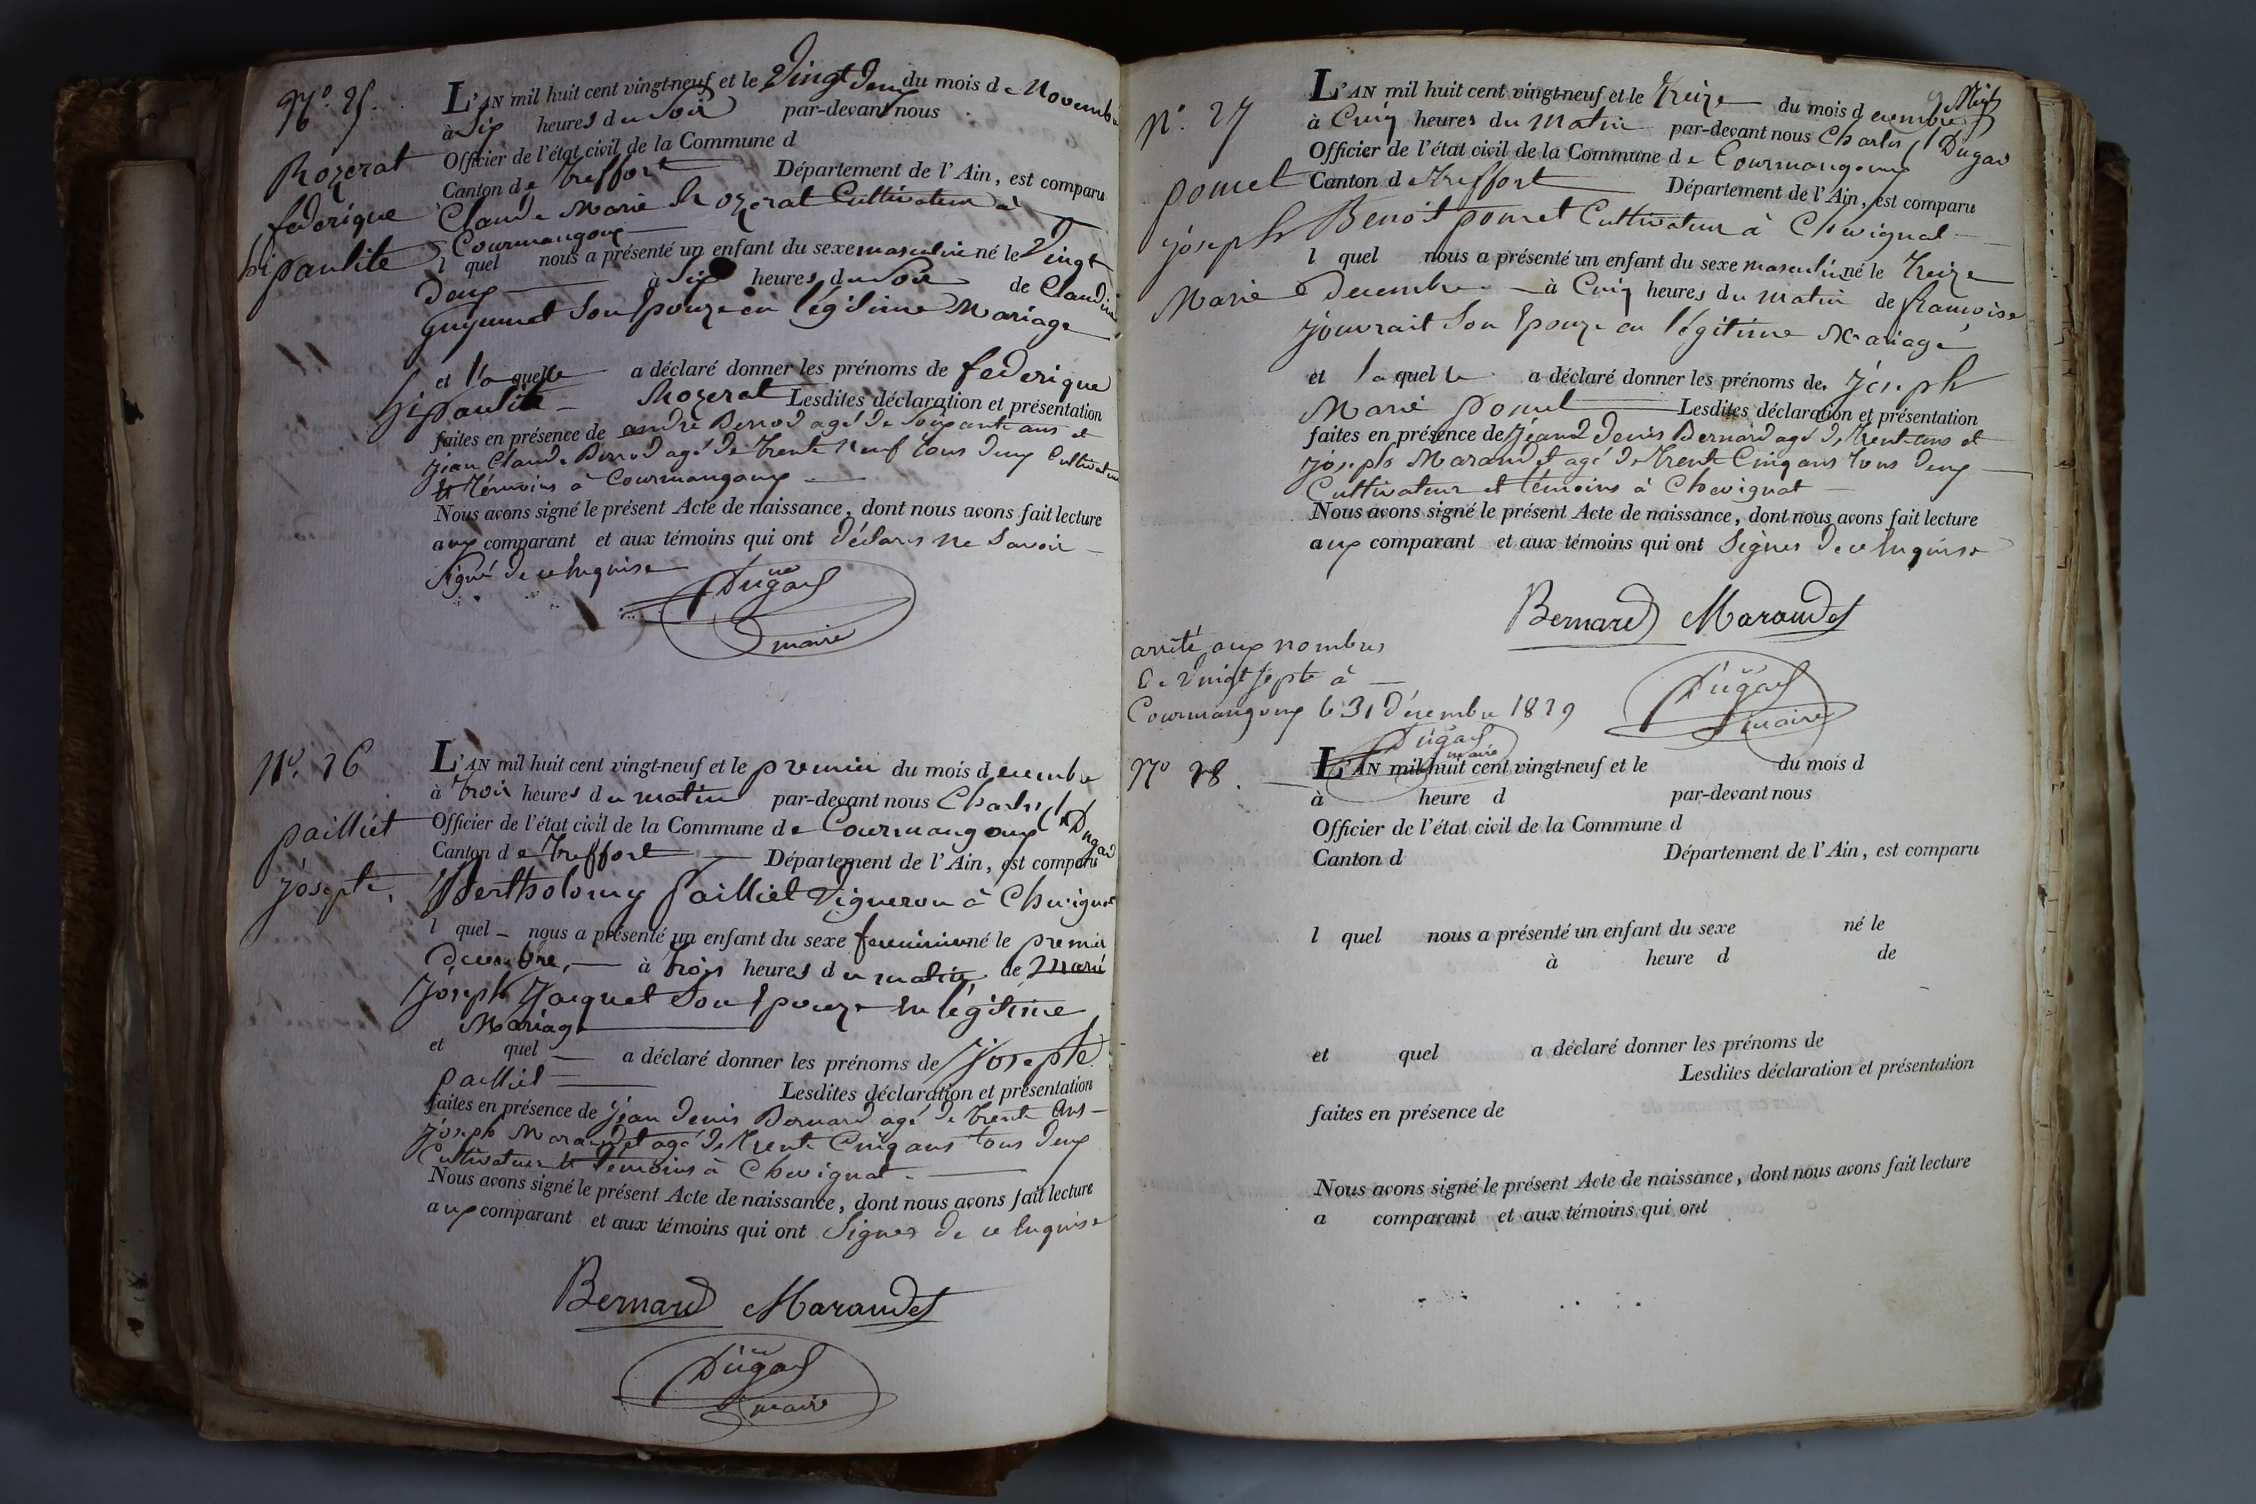 N.º 25.
Rozerat
federique
hipaulite
L'AN mil huit cent vingt-neuf et le Vingt deux du mois de Novembre
à Six heures du Soir par-devant nous
Officier de l'état civil de la Commune d
Canton de treffort Département de l'Ain, est comparu
Claude Marie Rozerat Cultivateur à
Courmangoux
l quel nous a présenté un enfant du sexe masculin né le Vingt
Deux à Six heures du Soir de Claudine
Guyennet Son Epouze en légitime Mariage
et laquelle a déclaré donner les prénoms de federique
hipaulite Rozerat Lesdites déclaration et présentation
faites en présence de andré Perrod agé de Soixante ans et
jean Claude Perrod agé de trente Neuf tous deux Cultivateur
et témoins à Courmangoux
Nous avons signé le présent Acte de naissance, dont nous avons fait lecture
aux comparant et aux témoins qui ont déclarés ne Savoir
Signé de ce Enquise
Dugad
maire
Nº. 26
pailliet
josepte.
L'AN mil huit cent vingt-neuf et le premier du mois decembre
à trois heures du matin par-devant nous Charles Dugad
Officier de l'état civil de la Commune de Courmangoux
Canton de treffort Département de l'Ain, est comparu
Bertholomy Pailliet Vigneron à Chevignat
l quel nous a présenté un enfant du sexe feminin né le premier
Decembre, à trois heures du matin de Marie
Joseph Jacquet Son Epouze en légitime
Mariage
et quel a déclaré donner les prénoms de Josepte
Pailliet Lesdites déclaration et présentation
faites en présence de jean denis Bernard agé de trente ans
joseph Marandet agé de trente Cinq ans tous deux
Cultivateur et témoins à Chevignat
Nous avons signé le présent Acte de naissance, dont nous avons fait lecture
aux comparant et aux témoins qui ont Signes de ce Enquise
Bernard Marandet
Dugad
maire
Nº. 27
pomet
joseph
Marie
L'AN mil huit cent vingt-neuf et le treize du mois decembre
à Cinq heures du Matin par-devant nous Charles Dugad
Officier de l'état civil de la Commune de Courmangoux
Canton de treffort Département de l'Ain, est comparu
Benoit pomet Cultivateur à Chevignat
l quel nous a présenté un enfant du sexe masculin né le treize
Decembre à Cinq heures du Matin de francoise
jouvrait Son Epouze en légitime Mariage
et laquelle a déclaré donner les prénoms de joseph
Marie pomet Lesdites déclaration et présentation
faites en présence de jean denis Bernard agé de trente ans et
joseph Marandet agé de trente Cinq ans tous deux
Cultivateur et témoins à Chevignat
Nous avons signé le présent Acte de naissance, dont nous avons fait lecture
aux comparant et aux témoins qui ont Signes de ce Enquise
Bernard Marandet
arrêté aux nombres
de vingt septe à
Courmangoux le 31 décembre 1829
Dugad
maire
Dugad
maire
Nº 28.
L'AN mil huit cent vingt-neuf et le du mois d
à heure d par-devant nous
Officier de l'état civil de la Commune d
Canton d Département de l'Ain, est comparu
l quel nous a présenté un enfant du sexe né le
à heure d de
et quel a déclaré donner les prénoms de
Lesdites déclaration et présentation
faites en présence de
Nous avons signé le présent Acte de naissance, dont nous avons fait lecture
a comparant et aux témoins qui ont